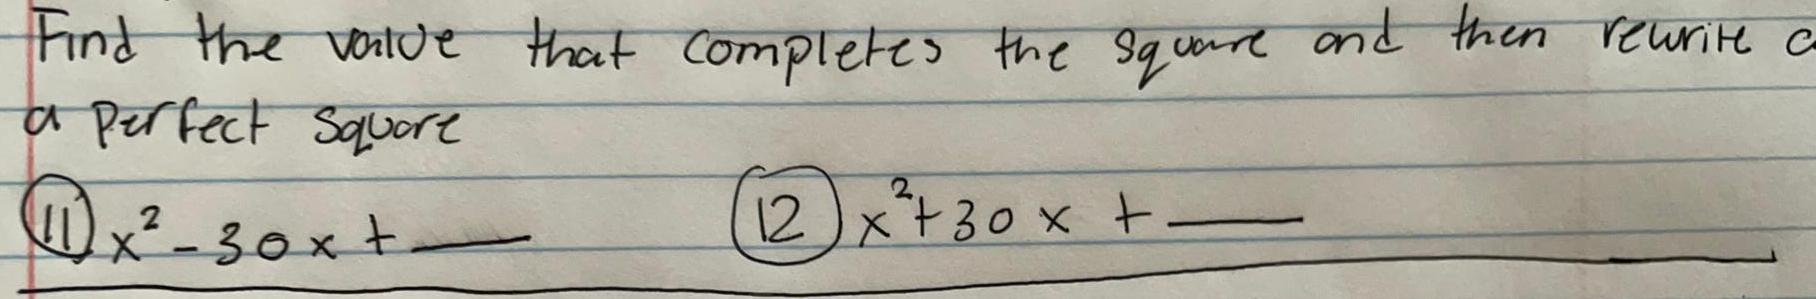 Find the value that completes the square and then rewrite a
a perfect square
11 x² - 30x + ___
12 x² + 30x + ___